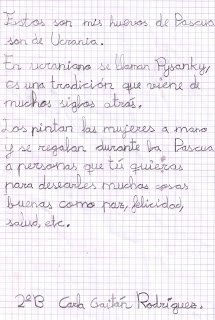 Estos son mis huevos de Pascua
son de Ucrania.
En ucraniano se llaman Pysanky,
es una tradición que viene de
muchos siglos atrás.
Los pintan las mujeres a mano
y se regalan durante la Pascua
a personas que tú quieras
para desearles muchas cosas
buenas como paz, felicidad,
salud, etc.
2ºB Carla Gaitán Rodríguez.